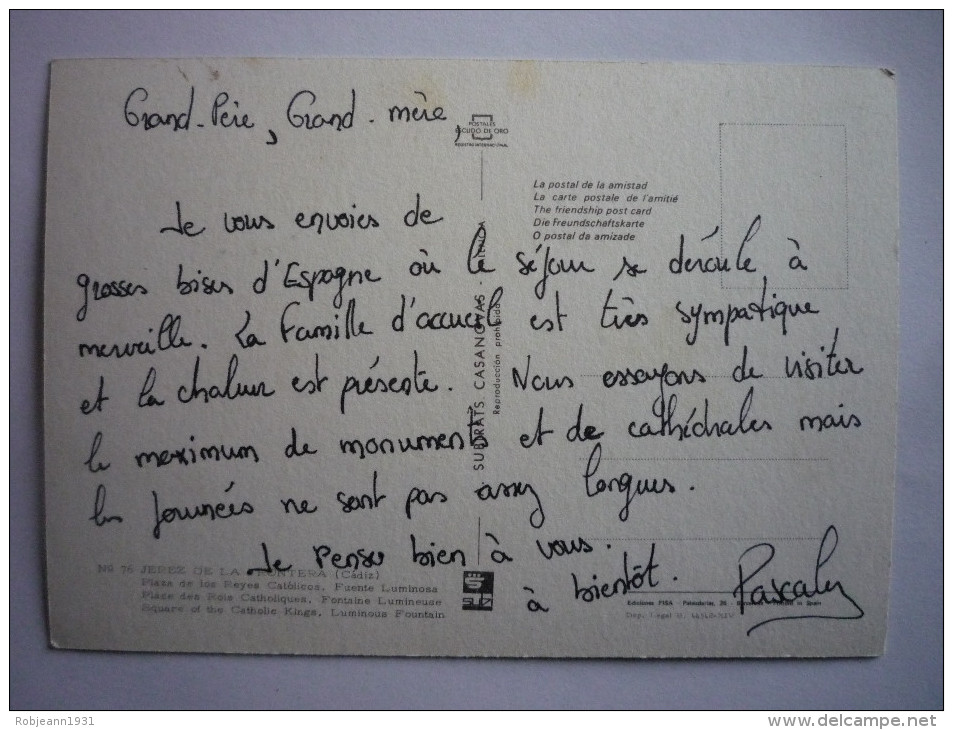 Grand-Père, Grand-mère,
POSTALES
ESCUDO DE ORO
La postal de la amistad
La carte postale de l'amitié
The friendship post card
Die Freundschaftskarte
O postal da amizade
Je vous envoies de
grosses bises d'Espagne où le séjour se déroule à
merveille. La Famille d'accueil est très sympatique
et la chaleur est présente. Nous essayons de visiter
le maximum de monuments et de cathédrales mais
les journées ne sont pas assez longues.
Je pense bien à vous.
à bientôt.
SUBIRATS CASANOVAS -
Reproducción prohibida
Nº 76 JEREZ DE LA FRONTERA (Cádiz)
Plaza de los Reyes Católicos, Fuente Luminosa
Place des Rois Catholiques, Fontaine Lumineuse
Square of the Catholic Kings, Luminous Fountain
Ediciones FISA - Palaudarias, 26 - in Spain
Dep. Legal B.
Robjeann1931
http://www.delcampe.net